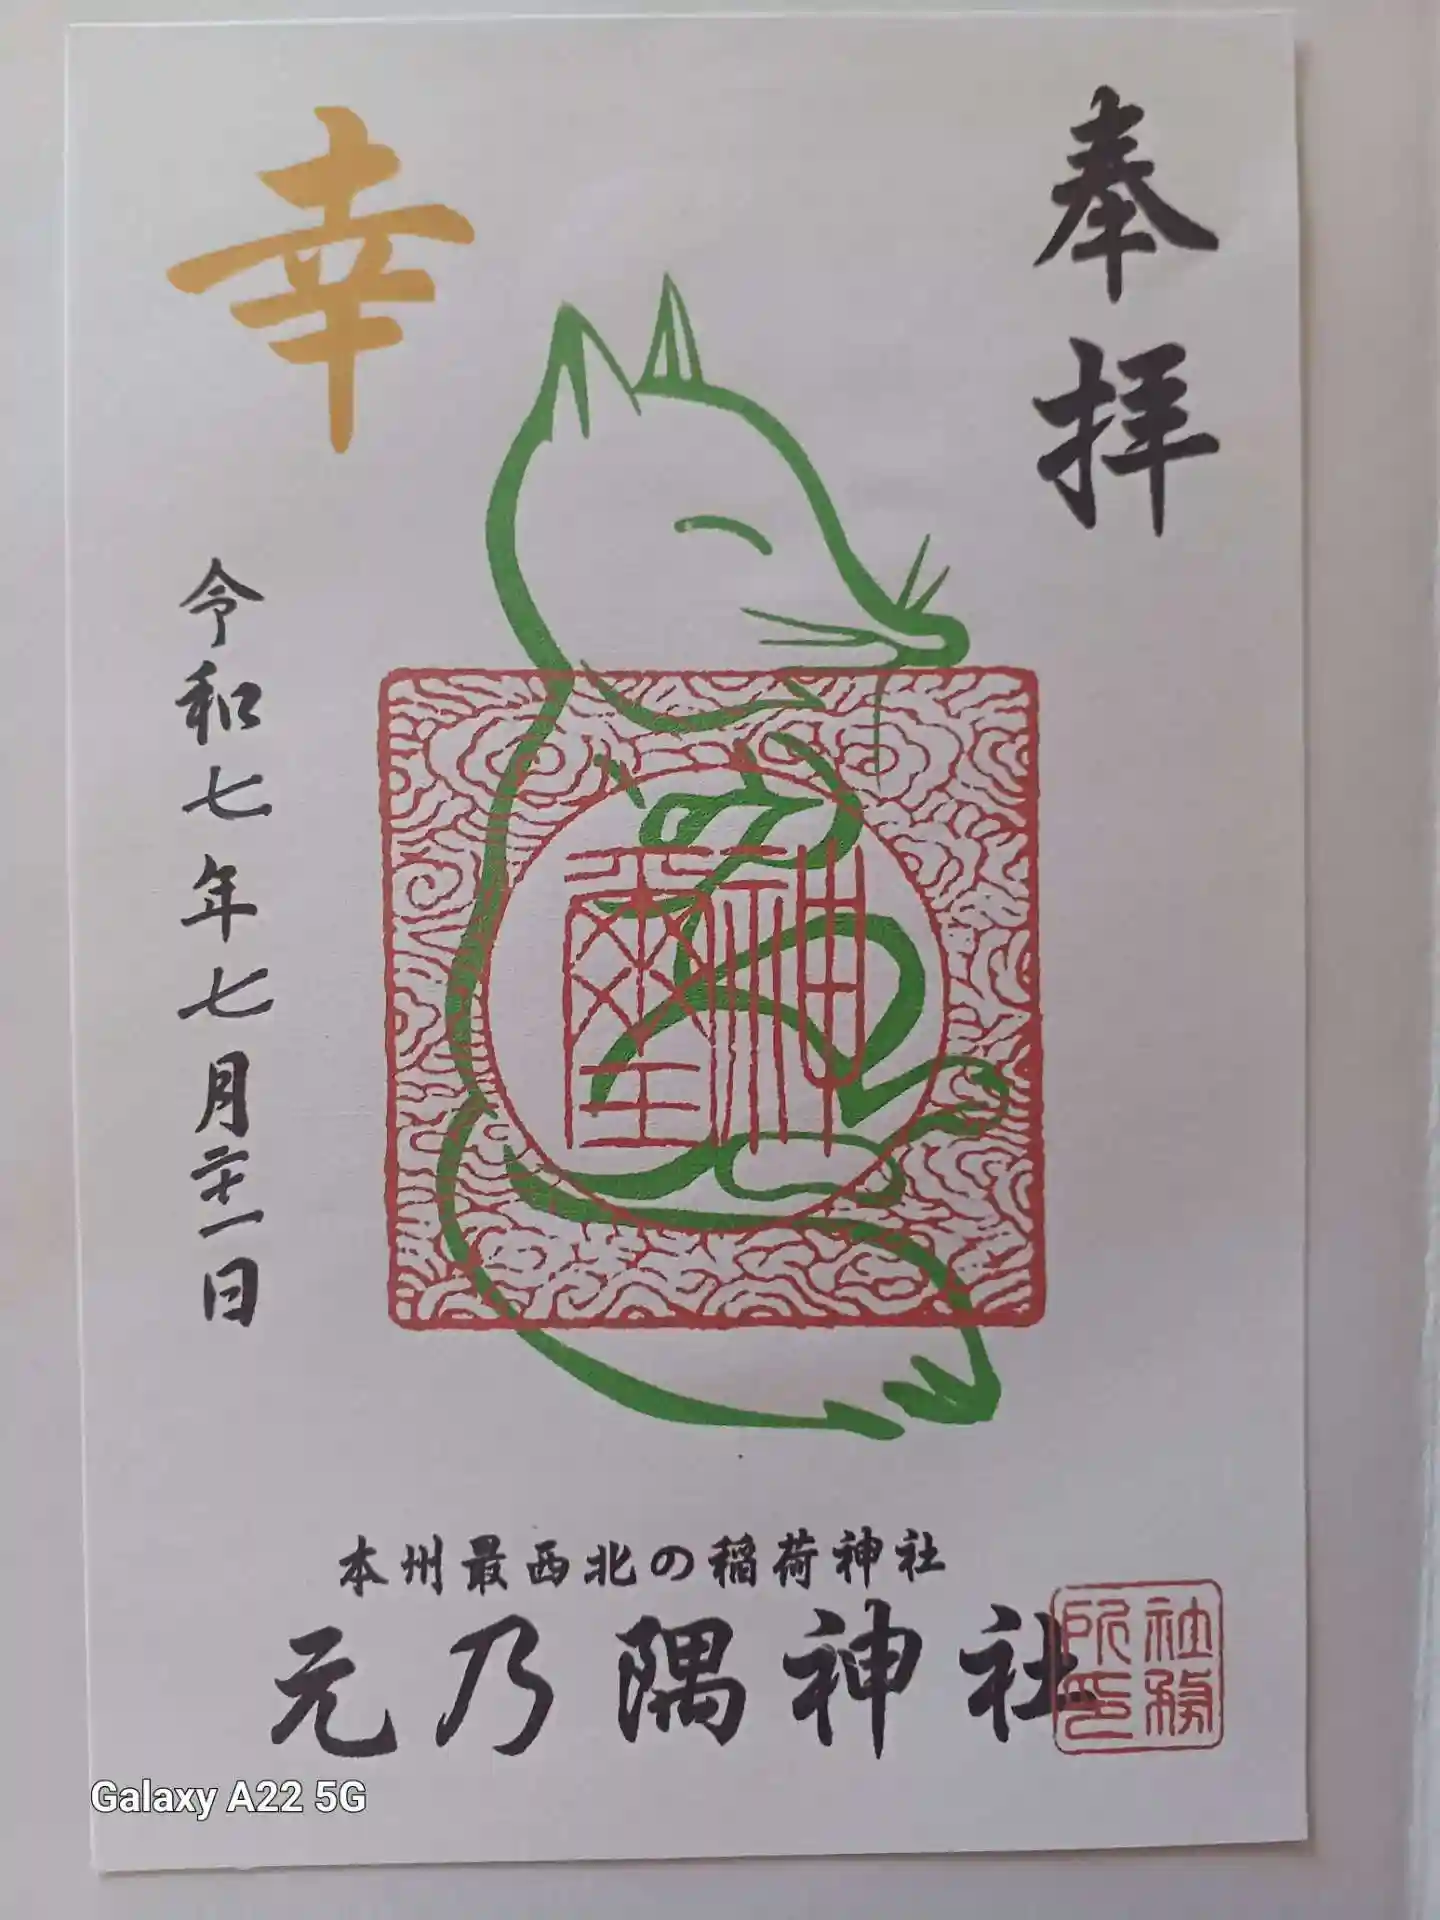 奉拝
幸
令和七年七月二十一日
神璽
本州最西北の稲荷神社
元乃隅神社
社務所印
Galaxy A22 5G